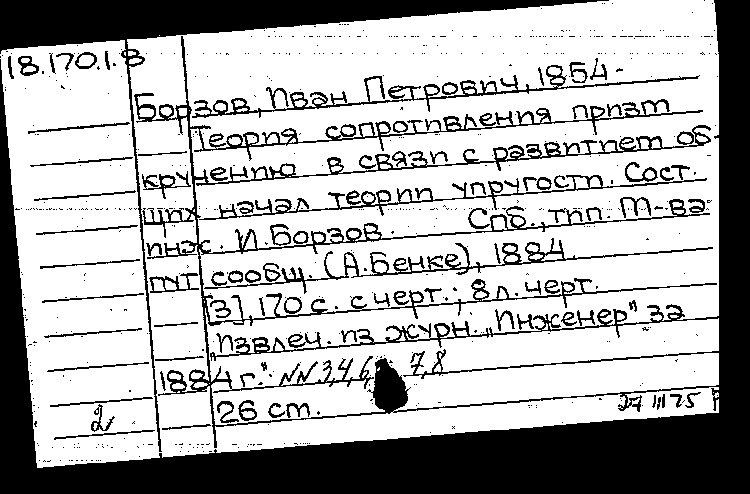 18.170.1.8
Борзов, Иван Петрович, 1854-
Теория сопротивления призм
кручению в связи с развитием об-
щих начал теории упругости. Сост.
инж. И.Борзов. Спб., тип. М-ва
пут. сообщ. (А.Бенке), 1884.
[3], 170 с. с черт.; 8 л. черт.
"Извлеч. из журн. „Инженер" за
1884 г." NN 3,4,6, 7,8
26 см.
2
27 III 75